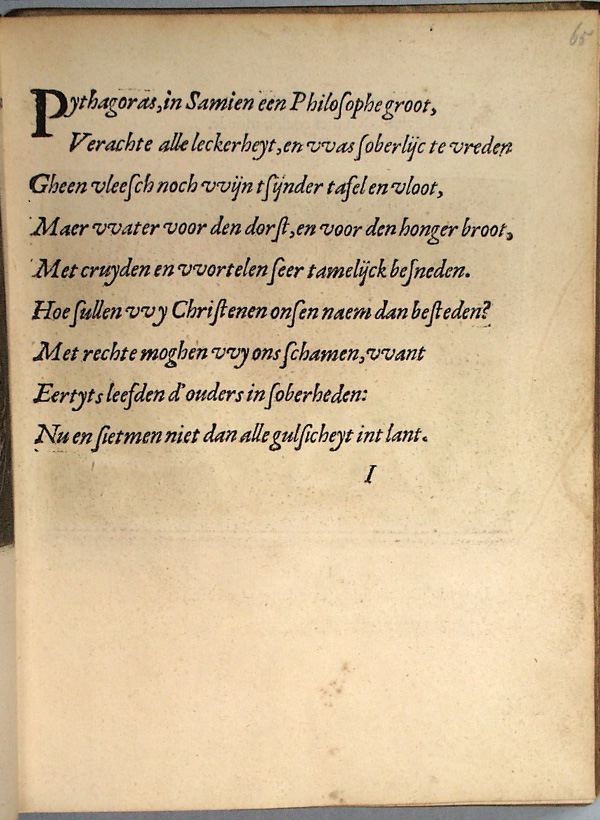 65
Pythagoras, in Samien een Philoſophe groot,
Verachte alle leckerheyt, en vvas ſoberlijc te vreden
Gheen vleeſch noch vvijn tſijnder tafel en vloot,
Maer vvater voor den dorſt, en voor den honger broot,
Met cruyden en vvortelen ſeer tamelijck beſneden.
Hoe ſullen vvy Chriſtenen onſen naem dan beſteden?
Met rechte moghen vvy ons ſchamen, vvant
Eertyts leefden d'ouders in ſoberheden:
Nu en ſietmen niet dan alle gulſicheyt int lant.
I